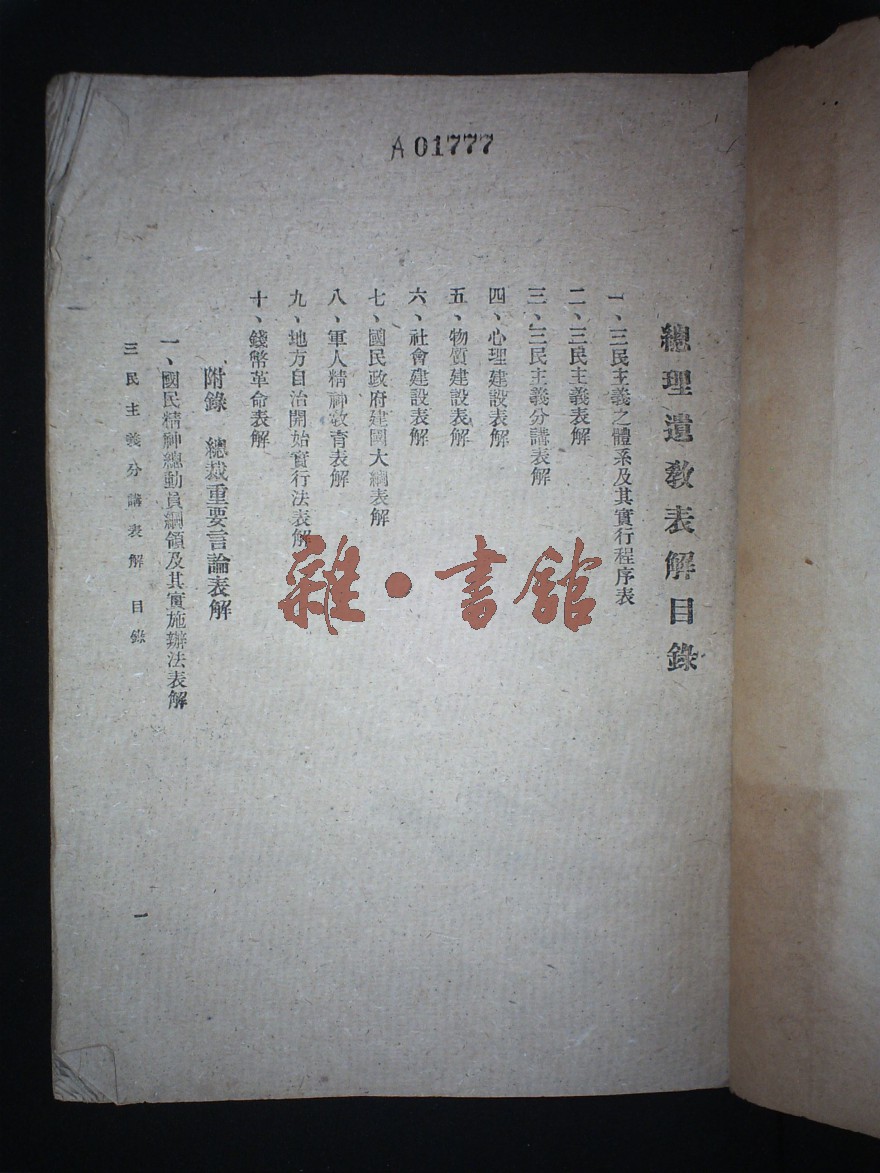 A 01777
總理遺教表解目錄
一、三民主義之體系及其實行程序表
二、三民主義表解
三、三民主義分講表解
四、心理建設表解
五、物質建設表解
六、社會建設表解
七、國民政府建國大綱表解
八、軍人精神教育表解
九、地方自治開始實行法表解
十、錢幣革命表解
附錄 總裁重要言論表解
一、國民精神總動員綱領及其實施辦法表解
三民主義分講表解 目錄
一
雜·書館